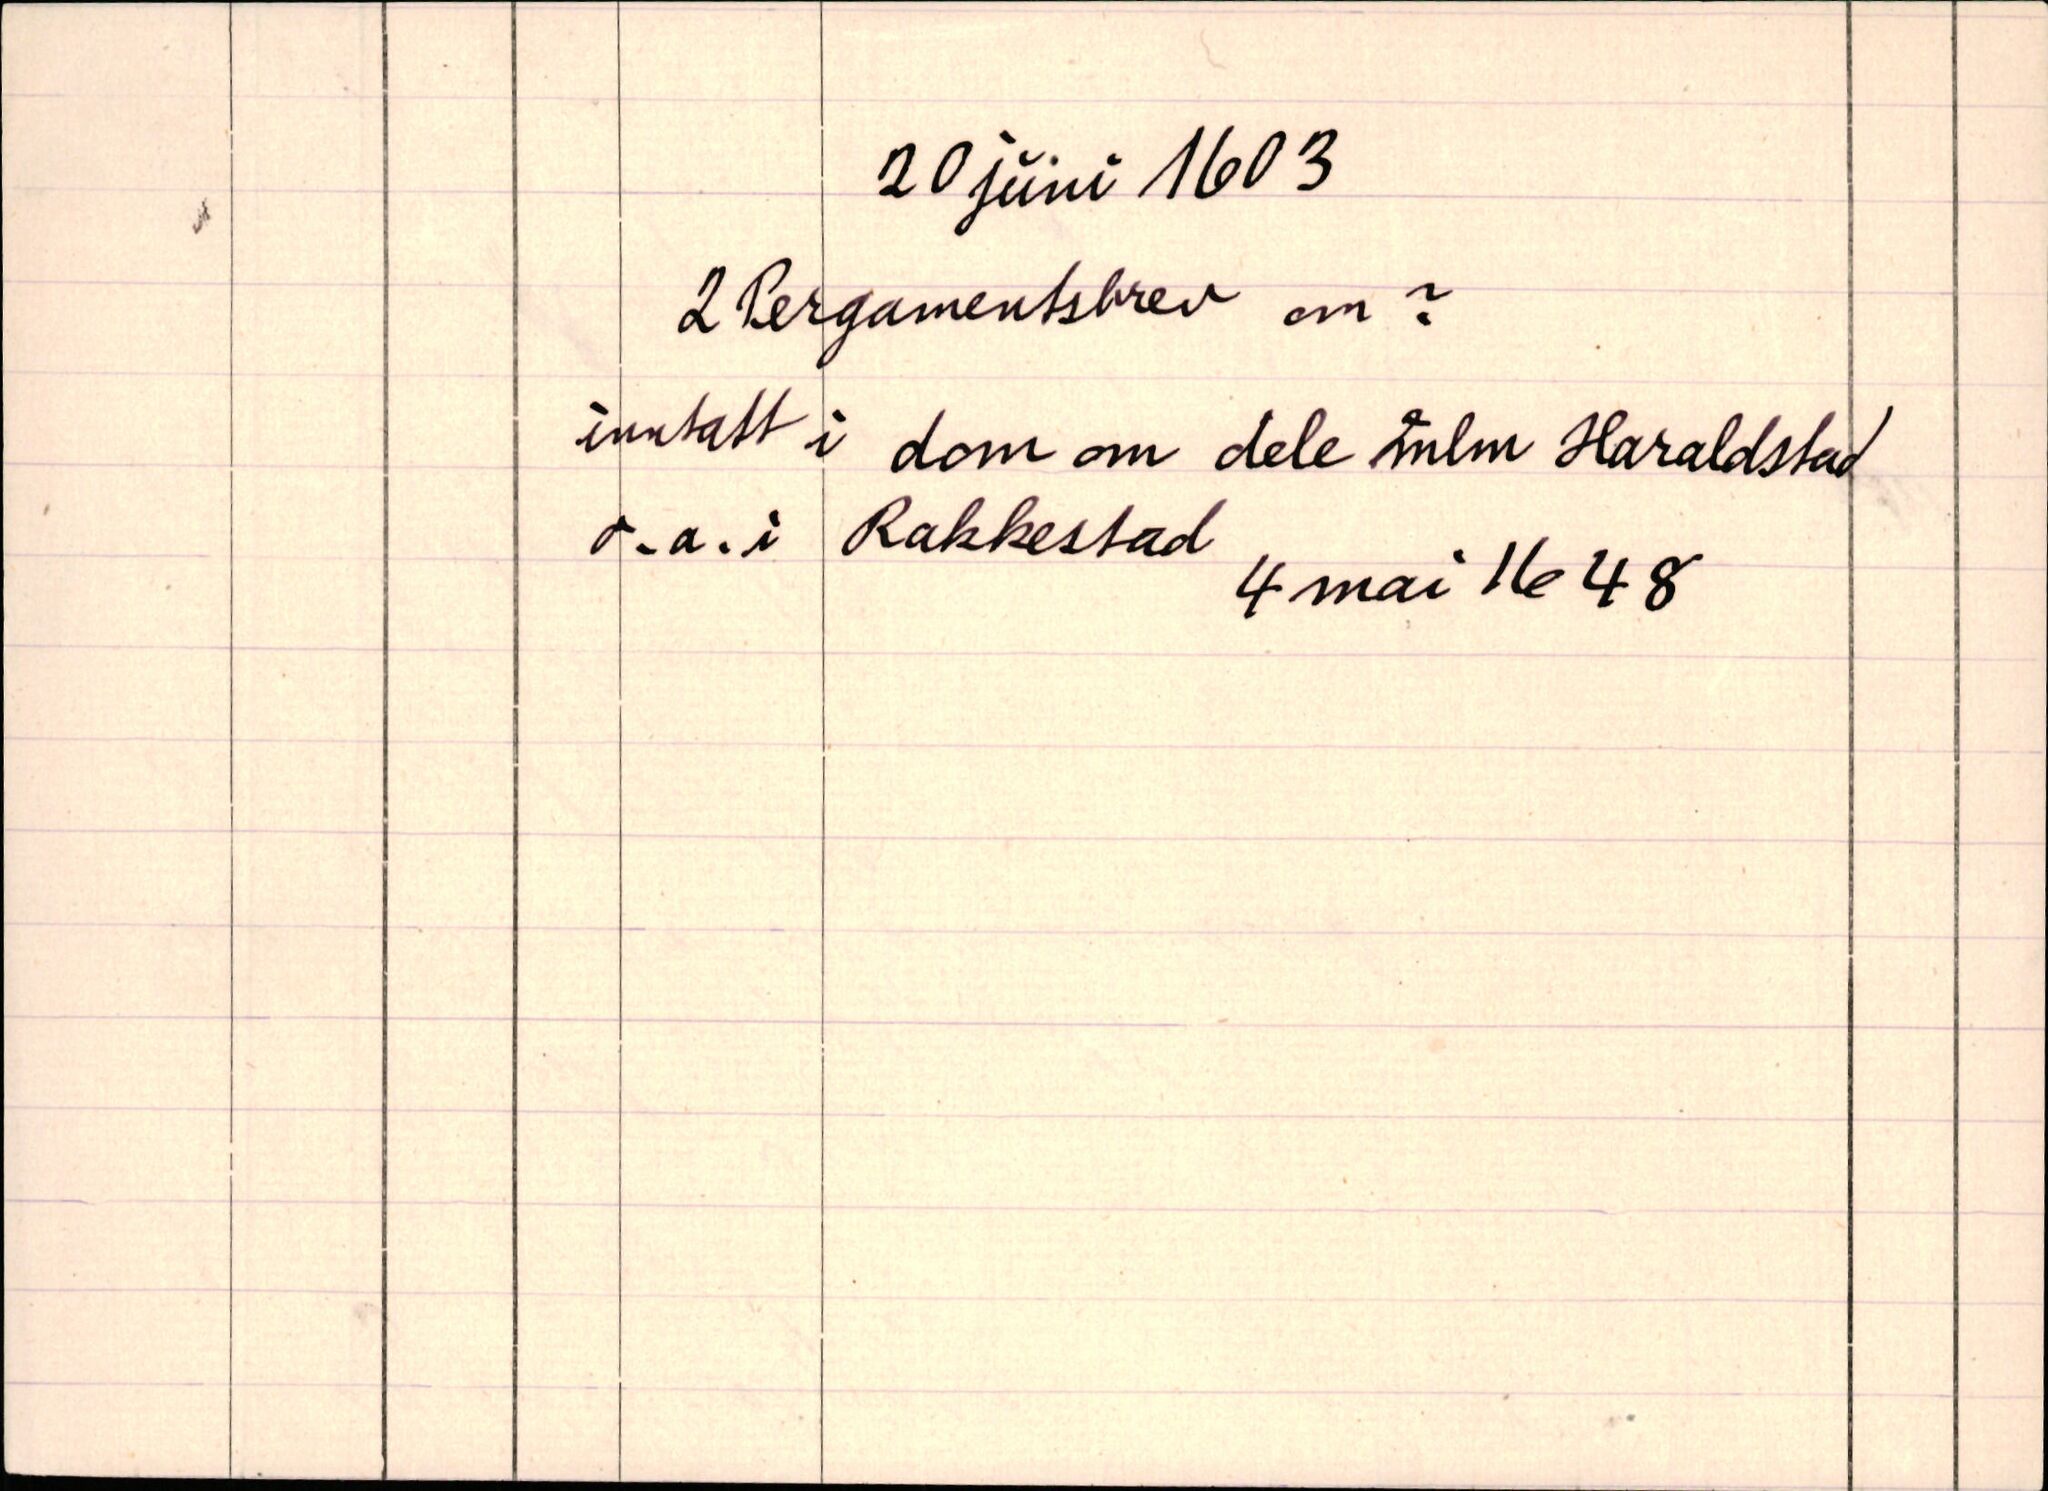 20 juni 1603
2 Pergamentsbrev om ?
inntatt i dom om dele mlm Haraldstad
o.a. i Rakkestad
4 mai 1648